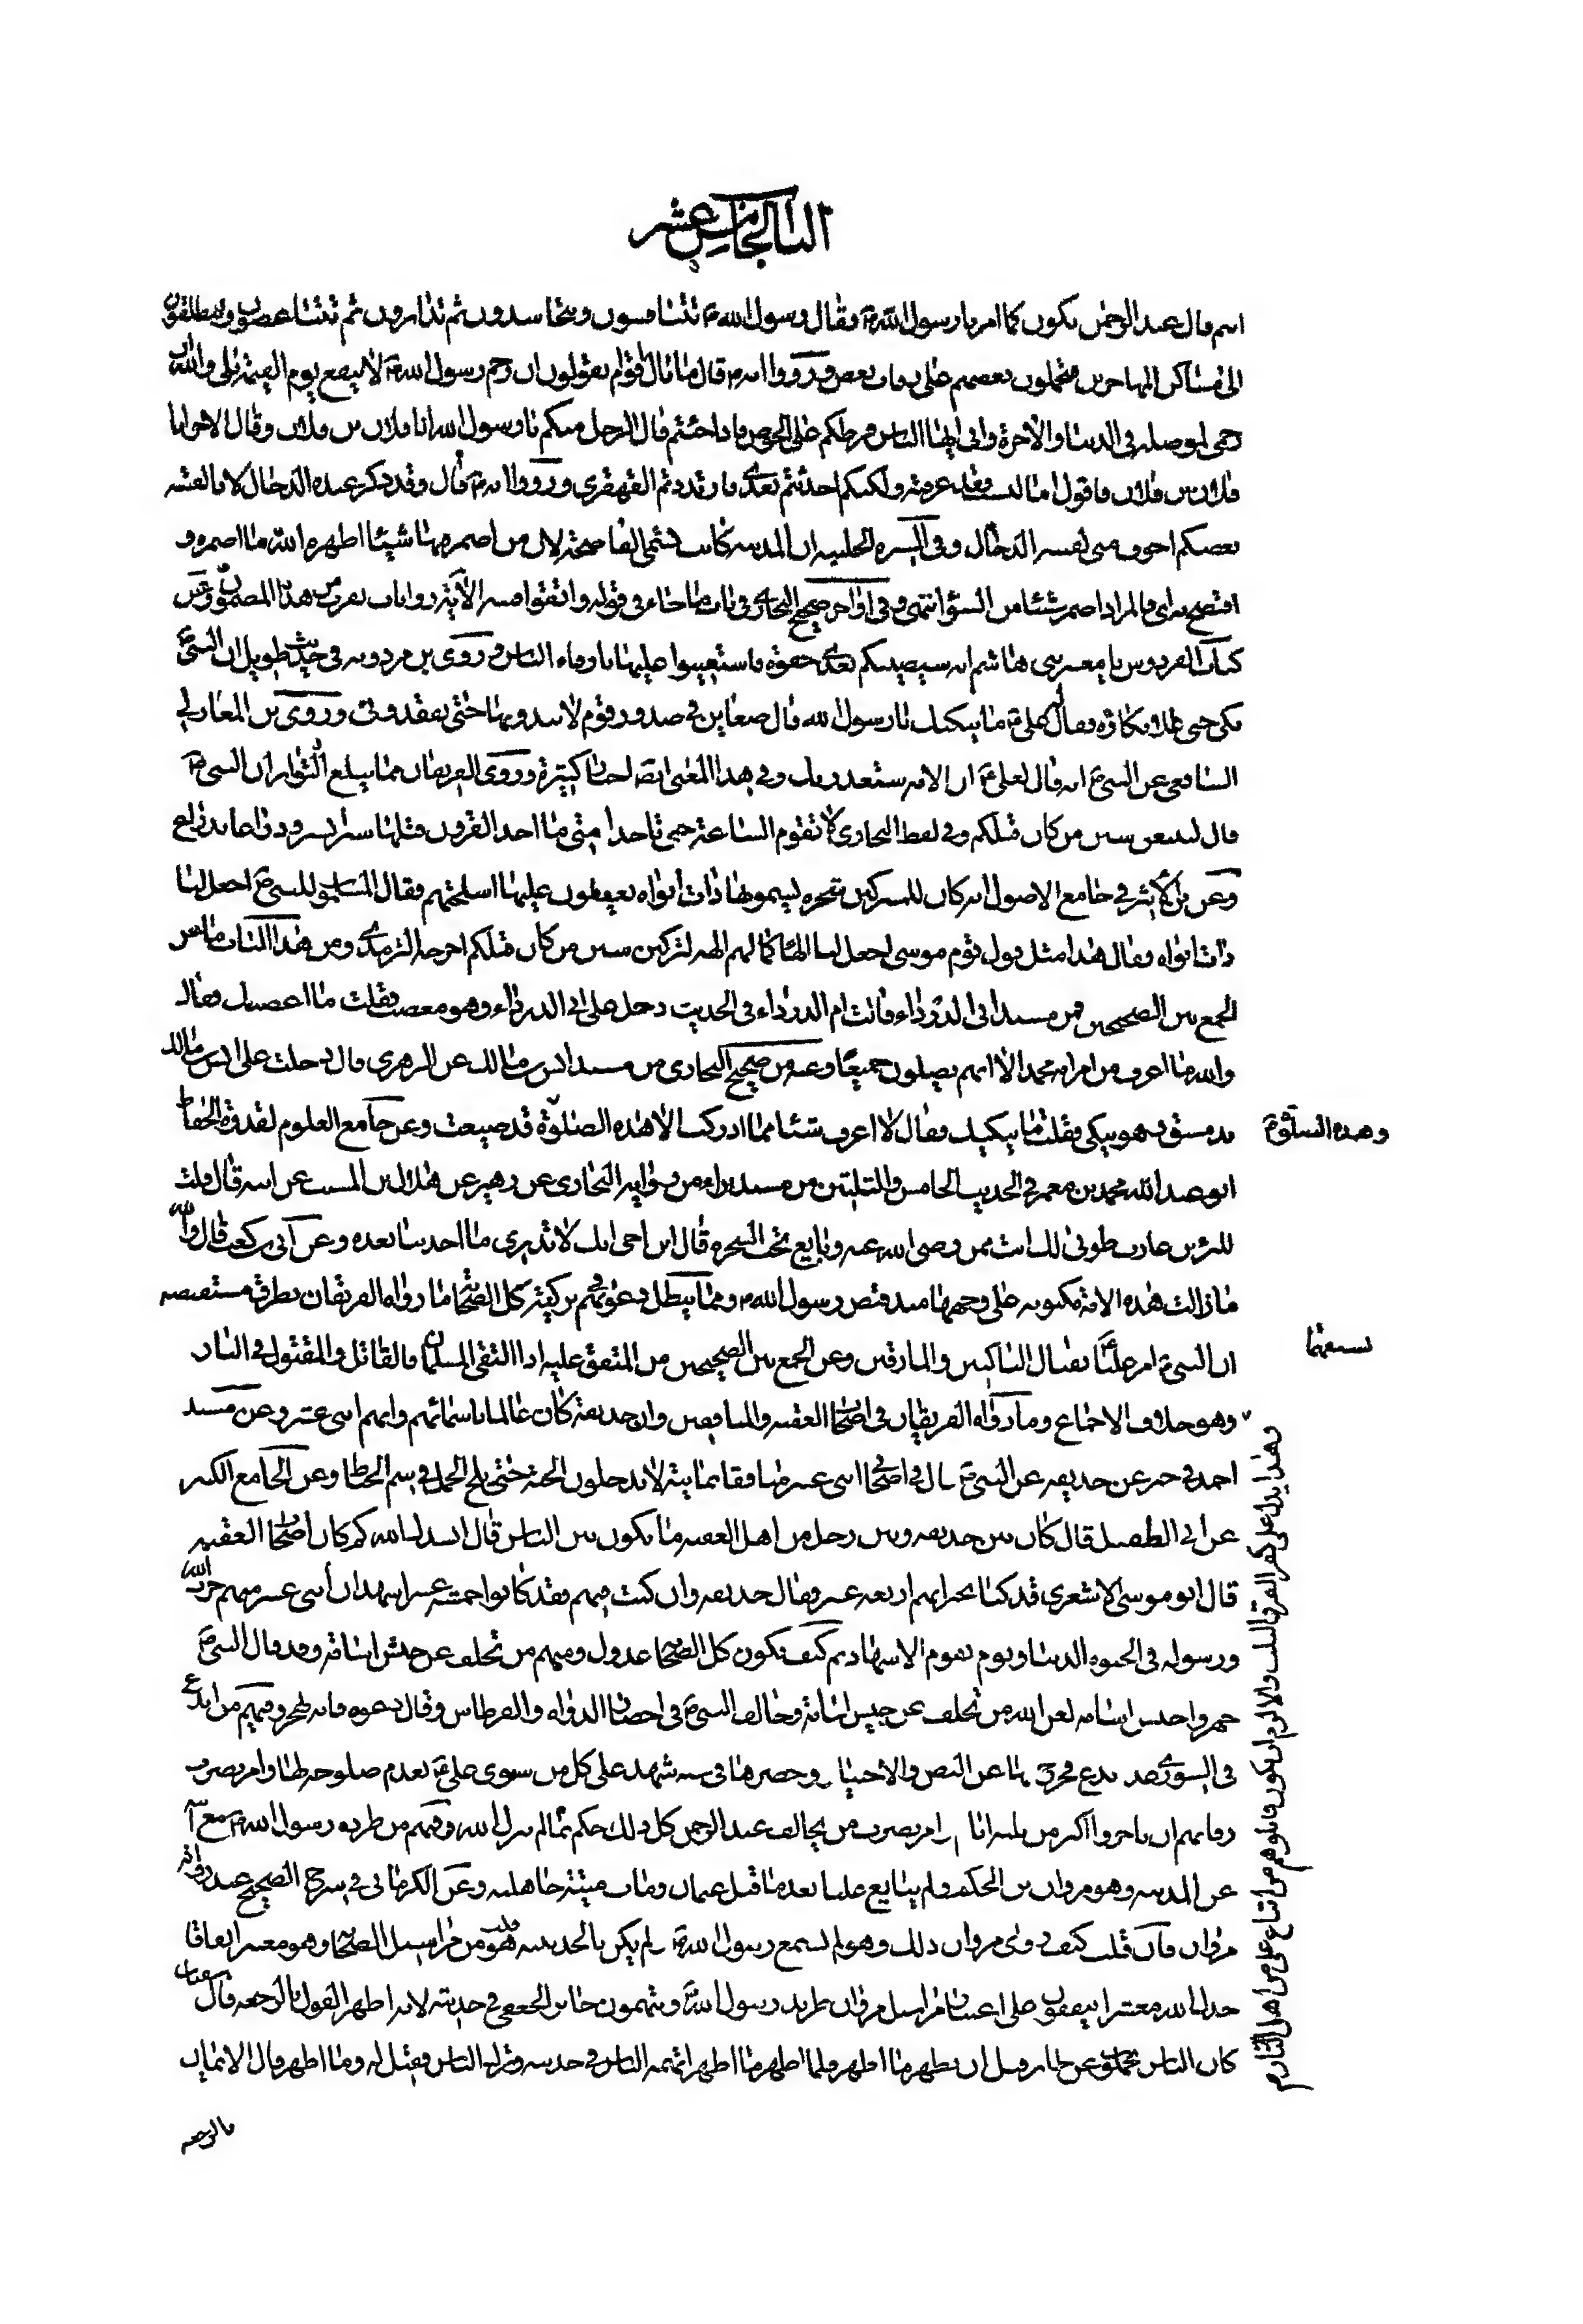 الباب الخامس عشر
انتم قال عبد الرحمن نكون كما امرنا رسول الله ص فقال رسول الله ص تتنافسون وتتحاسدون ثم تتدابرون ثم تتباغضون وتنطلقون
الى مساكن المهاجرين فتحملون بعضهم على رقاب بعض ورووا انه ص قال ما بال اقوام يقولون ان رحم رسول الله ص لا ينفع يوم القيمة بلى والله ان
رحمى لموصلة فى الدنيا والاخرة وانى ايها الناس فرطكم على الحوض فاذا جئتم قال الرجل منكم يا رسول الله انا فلان بن فلان وقال الاخر انا
فلان بن فلان فاقول اما النسب فقد عرفته ولكنكم احدثتم بعدى فارتددتم القهقرى ورووا انه ص قال وقد ذكر عنده الدجال لانا لفتنة
بعضكم اخوف منى لفتنة الدجال وفى السيرة الحلبية ان المدينة كانت تسمى الفاضحة لان من اضمر بها شيئا اظهره الله ما اضمره و
افتضح به اى فالمراد اضمر شيئا من السؤ انتهى وفى اواخر صحيح البخارى فى باب ما جاء فى قوله واتقوا فتنة الاية روايات تقرب من هذا المضمون وعن
كتاب الفردوس يا معشر بنى هاشم انه سيصيبكم بعدى جفوة فاستعينوا عليها بارقاء الناس وروى بن مردويه فى حديث طويل ان النبى ص
بكى حتى علا بكاؤه فقال له على ع ما يبكيك يا رسول الله قال ضغاين فى صدور قوم لا يبدونها حتى يفقدونى وروى بن المغازلى
الشافعى عن النبى ص انه قال لعلى ع ان الامة ستغدر بك وفى هذا المعنى ايضا اخبار كثيرة وروى الفريقان مما يبلغ التواتر ان النبى ص
قال لتتبعن سنن من كان قبلكم وفى لفظ البخارى لا تقوم الساعة حتى تاخذ امتى ما اخذ القرون قبلها شبرا بشبر وذراعا بذراع
وعن بن الاثير فى جامع الاصول انه كان للمشركين شجرة يسمونها ذات انواط يعلقون عليها اسلحتهم فقال المسلمون للنبى ص اجعل لنا
ذات انواط فقال هذا مثل قول قوم موسى اجعل لنا الها كما لهم الهة لتركبن سنن من كان قبلكم اخرجه الترمذى ومن هذا الباب ما عن
الجمع بين الصحيحين من مسند ابى الدرداء قالت ام الدرداء فى الحديث دخل على ابى الدرداء وهو مغضب فقلت ما اغضبك فقال
والله ما اعرف من امر امة محمد الا انهم يصلون جميعا وعنه من صحيح البخارى من مسند انس بن مالك عن الزهرى قال دخلت على انس بن مالك
بدمشق وهو يبكى فقلت ما يبكيك فقال لا اعرف شيئا مما ادركت الا هذه الصلوة قد ضيعت وعن جامع العلوم لقدوة الحفاظ
وهذه الصلوة
ابو عبد الله محمد بن معمر فى الحديث الخامس والثلثين من مسند براء من رواية البخارى عن زهير عن هلال بن المسيب عن ابيه قال قلت
للبرء بن عازب طوبى لك انت ممن رضى الله عنه وبايع تحت الشجرة قال ابن اخى انك لا تدرى ما احدثنا بعده وعن ابى بن كعب قال والله
ما زالت هذه الامة مكبوبة على وجهها منذ قبض رسول الله ص ومما يبطل دعوتهم بركية كل الصحابة ما رواه الفريقان بطرق مستفيضه
ان النبى ص امر عليا بقتال الناكثين والمارقين وعن الجمع بين الصحيحين من المتفق عليه اذا التقى المسلمان فالقاتل والمقتول فى النار
بسيفهما
وهو خلاف الاجماع وما رواه الفريقان فى اصحاب العقبة والمنافقين وان حذيفة كان عالما باسمائهم وانهم اثنى عشر وعن مسند
احمد فى خبر عن حذيفة عن النبى ص قال فى اصحابى اثنى عشر منافقا ثمانية لا يدخلون الجنة حتى يلج الجمل فى سم الخياط وعن الجامع الكبير
عن ابى الطفيل قال كان بين حذيفة وبين رجل من اهل العقبة ما يكون بين الناس قال انشدك الله كم كان اصحاب العقبة
قال ابو موسى الاشعرى قد كنا نخبر انهم اربعة عشر وقال حذيفة وان كنت فيهم فقد كانوا خمسة عشر اشهد ان اثنى عشر منهم حزب الله
ورسوله فى الحيوة الدنيا ويوم يقوم الاشهاد ثم كيف يكون كل الصحابة عدول ومنهم من تخلف عن جيش اسامة وقد قال النبى ص
جهزوا جيش اسامه لعن الله من تخلف عن جيش اسامة وخالف النبى ص فى احضار الدواة والقرطاس وقال دعوه فانه ليهجر ومنهم من ابدع
فى الشورى بدع فخرج بها عن النص والاختيار وحصرها فى ستة شهد على كل من سوى على ع بعدم صلوحه لها وامر بضرب
رقابهم ان تاخروا اكثر من ثلثة ايام وامر بضرب من يخالف عبد الرحمن كل ذلك حكم بما لم ينزل الله ومنهم من طرده رسول الله ص مع ابيه
عن المدينة وهو مروان بن الحكم ولم يبايع عليا بعد ما قتل عثمان ومات ميتة جاهلية وعن الكرمانى فى شرح الصحيح عند رواية
مروان فان قلت كيف روى مروان ذلك وهو لم يسمع رسول الله ص ولم يكن بالحديبية قلت هو من مراسيل الصحابة وهو معتبر اتفاقا
خذلهم الله معشرا يتفقون على اعتبار مراسيل مروان طريد رسول الله ص ويتهمون جابر الجعفى فى حديثه لانه اظهر القول بالرجعة قال سفيان
كان الناس يحملون عن جابر قبل ان يظهر ما اظهر فلما اظهر ما اظهر اتهمه الناس فى حديثه وتركه الناس فقيل له وما اظهر قال الايمان
بالرجعة
وهذا يدل على كفر الفرق الثلث والا لزم ان يكون قاتلوهم من اتباع على من اهل النار م